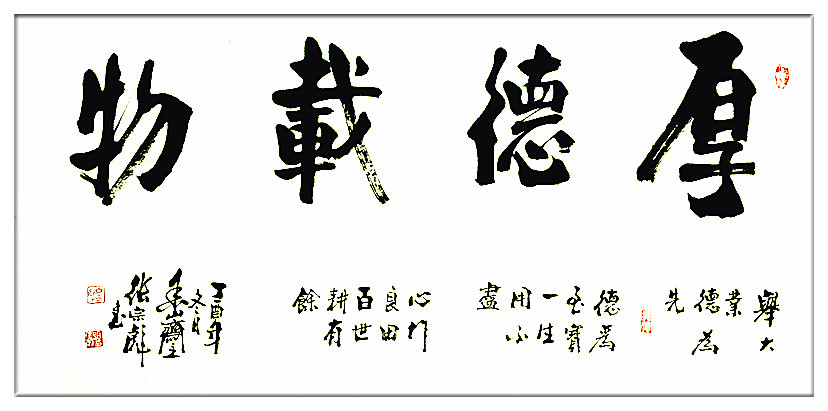 厚德載物
舉大
業
德為
先
德為
至寶
一生
用不
盡
心作
良田
百世
耕有
餘
丁酉年
冬月
張宗彪
書